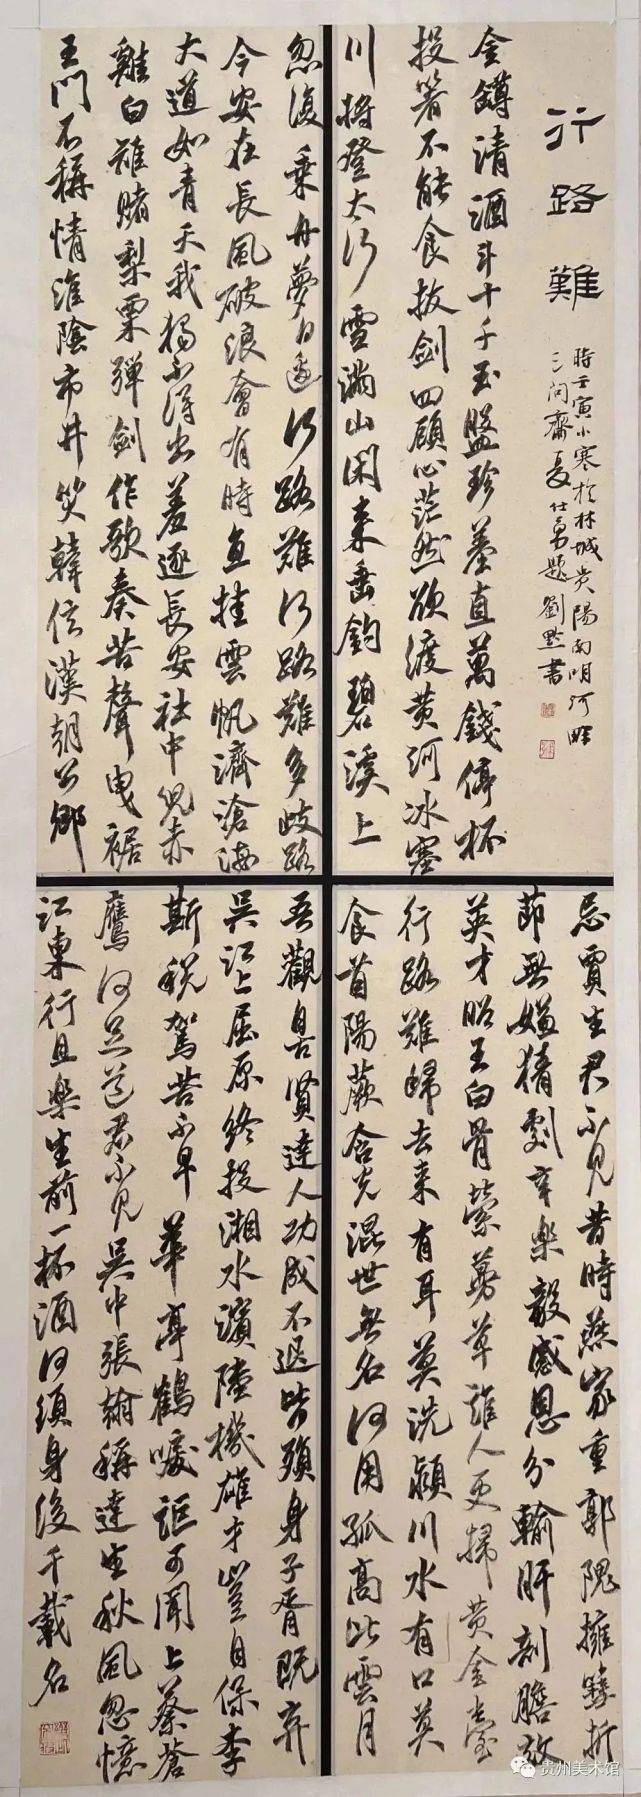 行路難
時壬寅小寒於林城贵陽南明河畔
三问齋夏仕勇題劉黔書
金罇清酒斗十千玉盤珍羞直萬錢停杯
投箸不能食拔劍四顧心茫然欲渡黄河冰塞
川將登太行雪滿山閑來垂釣碧溪上
忽復乘舟夢日邊行路難行路難多歧路
今安在長風破浪會有時直挂雲帆濟滄海
大道如青天我獨不得出羞逐長安社中兒赤
雞白雉賭梨栗彈劍作歌奏苦聲曳裾
王門不稱情淮陰市井笑韓信漢朝公卿
忌賈生君不見昔時燕家重郭隗擁篲折
節無嫌猜劇辛樂毅感恩分輸肝剖膽效
英才昭王白骨縈蔓草誰人更掃黄金臺
行路難歸去來有耳莫洗潁川水有口莫
食首陽蕨含光混世無名何用孤高比雲月
吾觀自古賢達人功成不退皆殞身子胥既弃
吳江上屈原終投湘水濱陸機雄才豈自保李
斯稅駕苦不早華亭鶴唳詎可聞上蔡蒼
鷹何足道君不見吳中張翰稱達生秋風忽憶
江東行且樂生前一杯酒何須身後千載名
贵州美术馆